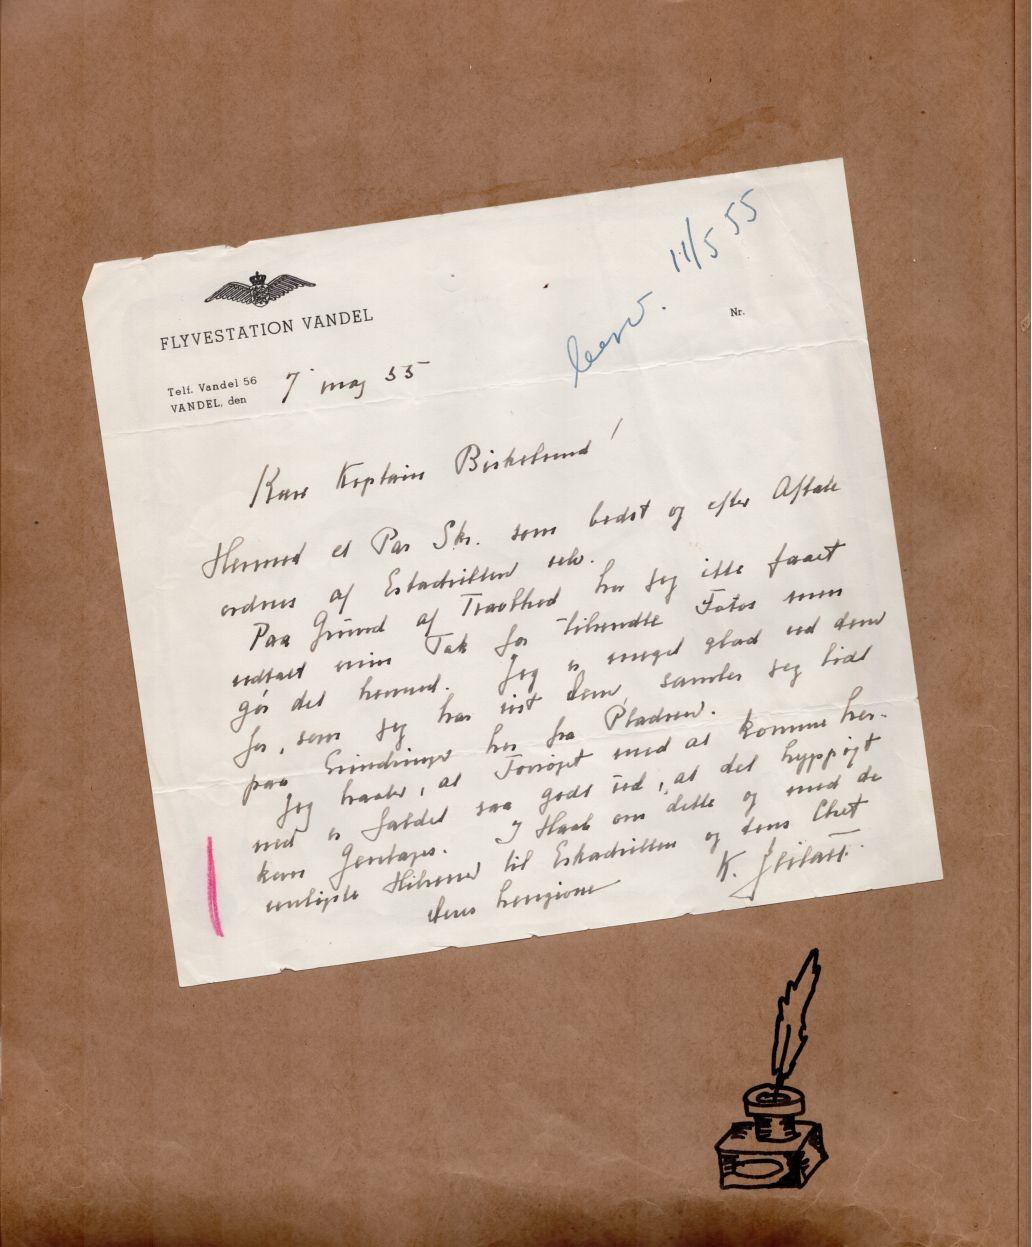 11/5 55
FLYVESTATION VANDEL
Nr.
Telf. Vandel 56
VANDEL, den 7' maj 55
Kære Kaptain Birkelund!
Hermed et Par Skr. som bedst og efter Aftale
ordnes af Eskadrillen selv.
Paa Grund af Travlhed har jeg ikke faaet
udtalt min Tak for tilsendte Fotos men
gør det hermed. Jeg er meget glad ved dem
for, som jeg har vist Dem, samler jeg lidt
paa Erindringer her fra Pladsen.
Jeg haaber, at Forsøget med at komme her-
ned er faldet saa godt ud, at det hyppigt
kan gentages. I Haab om dette og med de
venligste Hilsener til Eskadrillen og dens Chef
Deres hengivne
K.